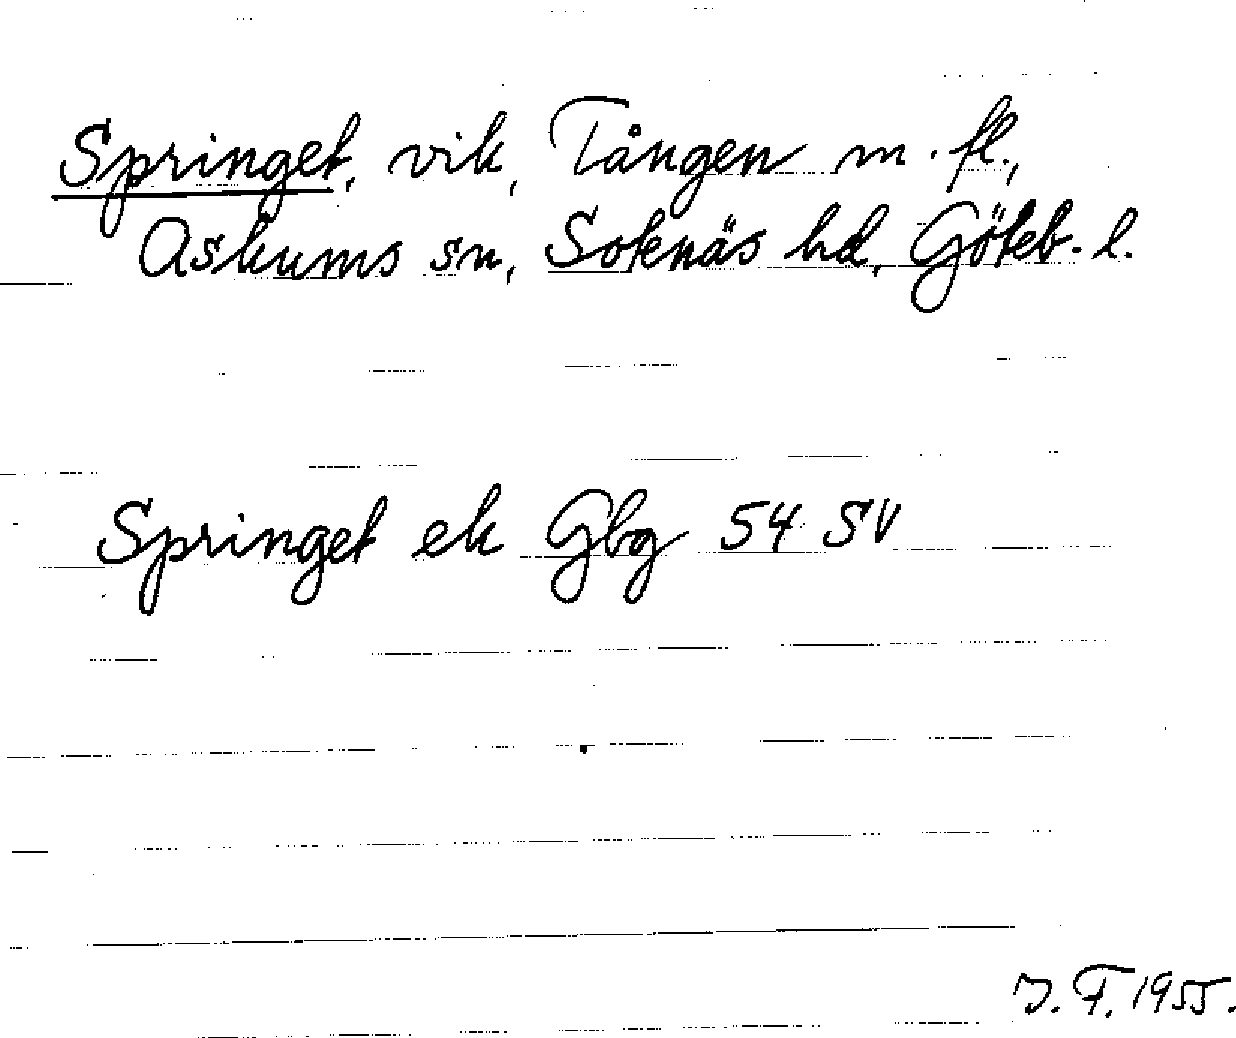 Springet, vik, Tången m. fl.,
Askums sn, Sotenäs hd, Göteb. l.
Springet ek Gbg 54 SV
J. F. 1955.